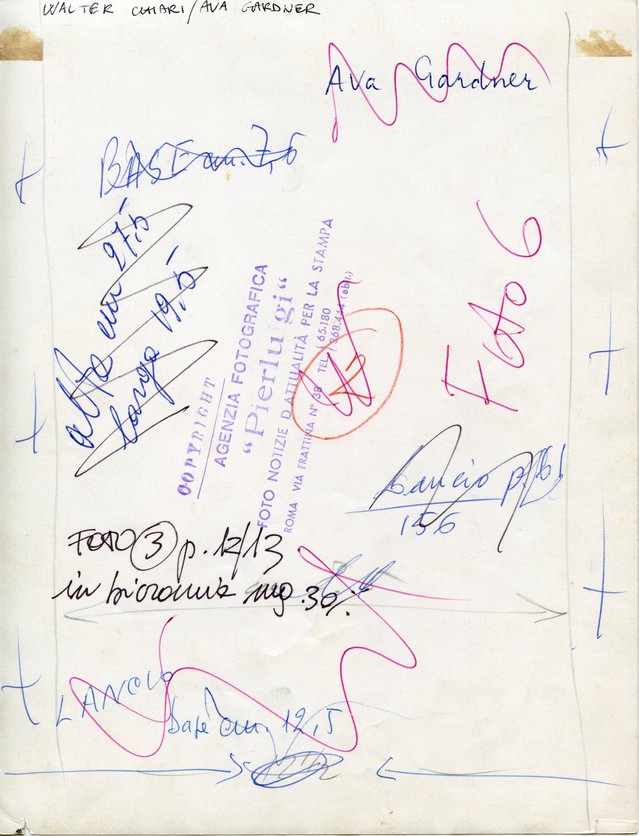 WALTER CHIARI/AVA GARDNER
Ava Gardner
BASE cm. 7,5
alta cm 27,5
larga 19,5
COPYRIGHT
AGENZIA FOTOGRAFICA
"Pierluigi"
FOTO NOTIZIE D'ATTUALITÀ PER LA STAMPA
ROMA VIA FRATTINA N° 38 TEL.
Foto 6
Lancio
156
FOTO 3 p. 12/13
in bicromia mg. 30%
LANCIO
base cm. 12,5